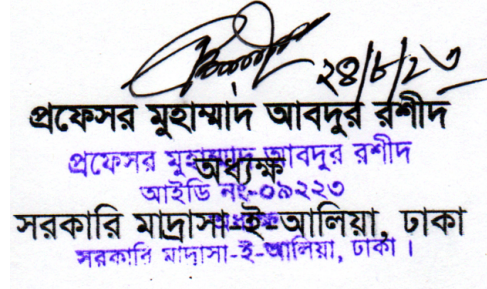 ২৪/৮/২৩
প্রফেসর মুহাম্মাদ আবদুর রশীদ
প্রফেসর মুহাম্মাদ আবদুর রশীদ
অধ্যক্ষ
আইডি নং-০৯২২৩
সরকারি মাদ্রাসা-ই-আলিয়া, ঢাকা
সরকারি মাদ্রাসা-ই-আলিয়া, ঢাকা ।